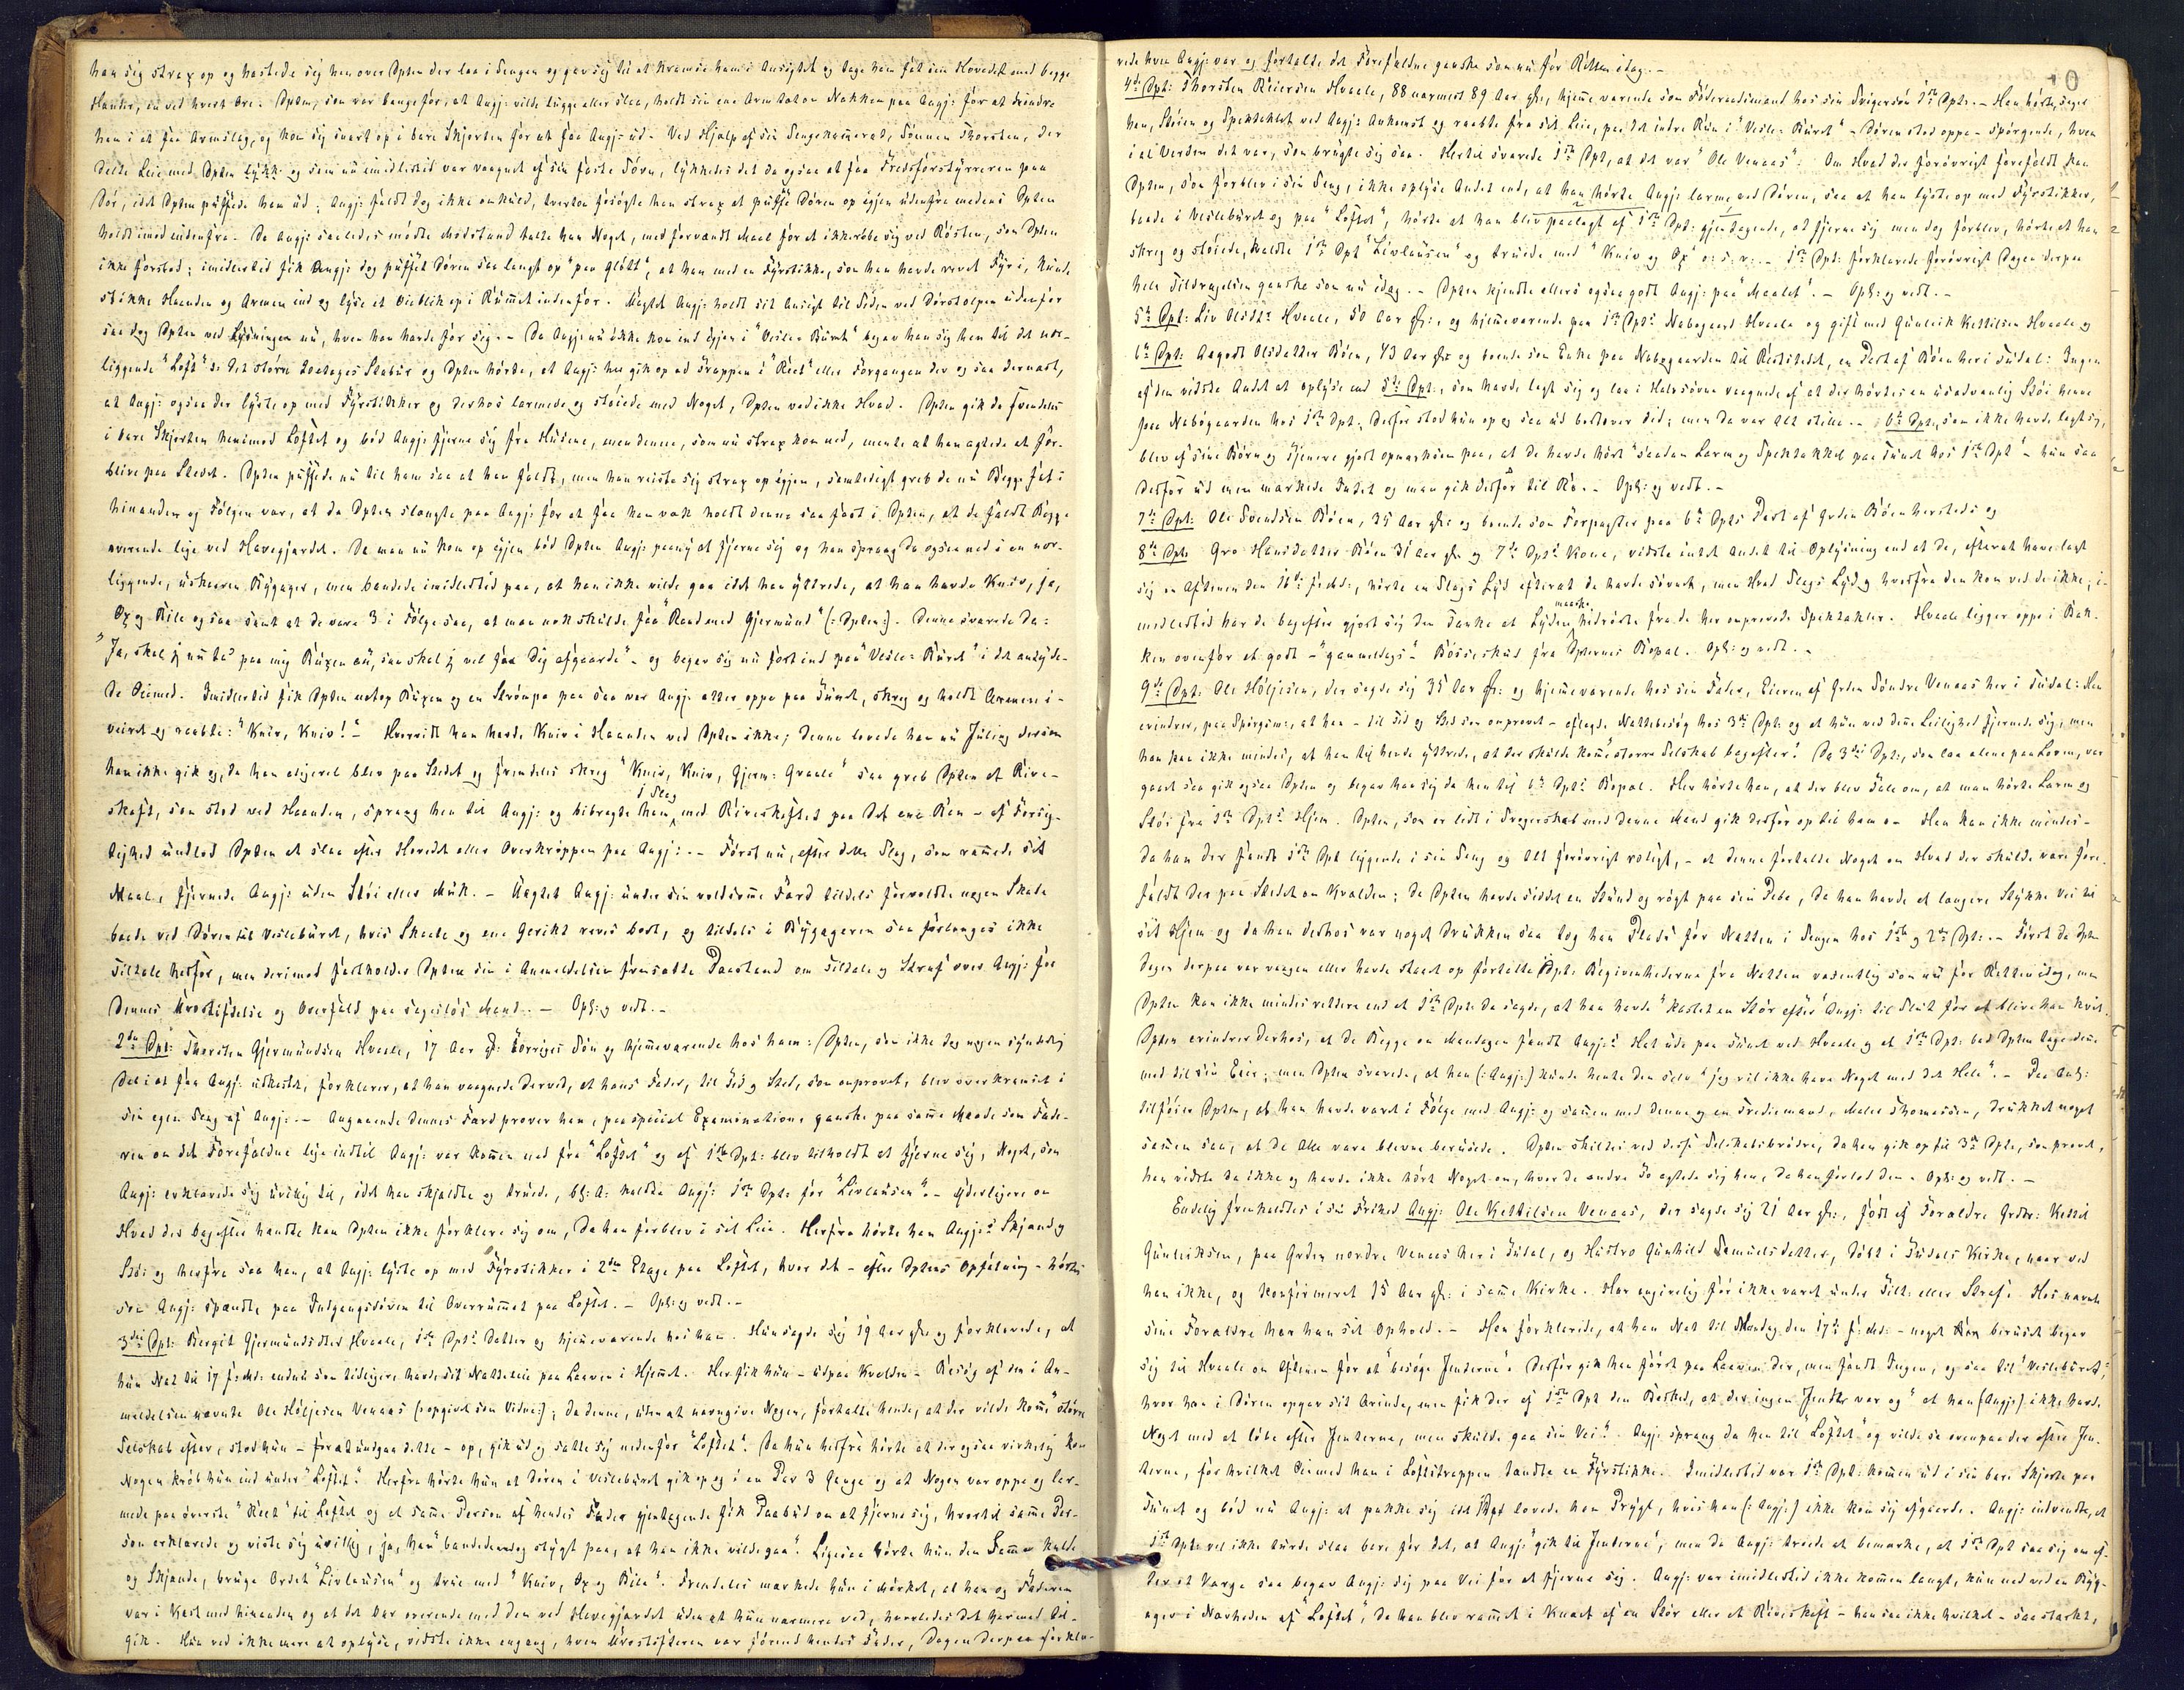 han sig strax op og hastede sig hen over Dpten der laa i Sengen og gav sig til at kramse ham i Ansigtet og tage ham fat om Hovedet med begge
Hænder, en ved hvert Øre. Dpten, som var bange for, at Angj: vilde bugge eller slaa, holdt sin ene Arm tat om Nakken paa Angj: for at hindre
ham i at faa Armslag, og kom sig snart op i bare Skjorten for at faa Angj: ud. Ved Hjælp af sin Sengekammerat, Sønnen Thorsten, der
delte Leie med Dpten og som nu imidlertid var vaagnet af sin faste Søvn, lykkedes det da ogsaa at faa Fredsforstyrreren paa
Dør, idet Dpten püffede ham ud; Angj: faldt dog ikke omkuld, hvorfor forsøgte han strax at püffe Døren op igjen udenfra medens Dpten
holdt imod indenfra. Da Angj: saaledes mødte Modstand talte han Noget, med forvendt Maal for at ikke røbe sig ved Røsten, som Dpten
ikke forstod; imidlertid fik Angj: dog püffet Døren saa langt op "paa Gløtt", at han med en Fyrstikke, som han havde revet Fyr i, kunde
stikke Haanden og Armen ind og lyse et Øieblik op i Rummet indenfor. Uagtet Angj: holdt sit Ansigt til Siden ved Dørstolpen udenfor
saa dog Dpten ved Lysningen nu, hvem han havde for sig. - Da Angj: nu ikke kom ind igjen i "Vesle-Buret" begav han sig hen til det nær-
liggende "Loft" ɔ: det større 2 etages Stabur og Dpten hørte, at Angj: her gik op ad Trappen i "Kvet" eller Forgangen der og saa dernæst,
at Angj: ogsaa der lyste op med Fyrstikker og derhos larmede og støiede med Noget, Dpten ved ikke Hvad. Dpten gik da fremdeles
i bare Skjorten henimod Loftet og bød Angj: fjerne sig fra Husene, men denne, som nu strax kom ned, mente at han agtede at for-
blive paa Stedet. Dpten püffede nu til ham saa at han faldt, men han reiste sig strax op igjen, samtidigt greb de nu Begge fat i
hinanden og Følgen var, at da Dpten slængte paa Angj: for at faa ham væk holdt denne saa fast i Dpten, at de faldt Begge
overende lige ved Havegjærdet. Da man nu kom op igjen bød Dpten Angj: paany at fjerne sig og han sprang da ogsaa ned i en nær-
liggende, uskaaren Bygager, men bandede imidlertid paa, at han ikke vilde gaa idet han yttrede, at han havde Kniv, ja,
Øx og Bile ogsaa samt at de vare 3 i Følge saa, at man nok skulde faa "Raad med Gjermund" (: Dpten:). Denne svarede da:
"Ja, skal jeg nu ta' paa mig Buxen au, saa skal jeg vel faa Dig afgaarde" - og begav sig nu først ind paa "Vesle-Buret" i det antyde-
de Øiemed. Imidlertid fik Dpten netop Buxen og en Strømpe paa saa var Angj: atter oppe paa Tunet, skreg og holdt Armene i-
veiret og raabte: "Kniv, Kniv!" Hvorvidt han havde Kniv i Haanden ved Dpten ikke; denne lovede ham nu Juling dersom
han ikke gik og, da han aligevel blev paa Stedet og fremdeles skreg "Kniv, Kniv, Gjerm: Hvaale" saa greb Dpten et Rive-
skaft, som stod ved Haanden, sprang hen til Angj: og bibragte ham 1 Slag med Riveskaftet paa det ene Ben - af Forsig-
tighed undlod Dpten at slaa efter Hovedet eller Overkroppen paa Angj:. - Først nu, efter dette Slag, som rammede sit
Maal, fjernede Angj: uden Støi eller Muk. - Uagtet Angj: under sin voldsomme Færd tildels forvoldte nogen Skade
baade ved Døren til Veslebüret, hvis Skaate og ene Gerikt reves bort, og tildels i Bygageren saa forlanges ikke
Tiltale herfor, men derimod fastholder Dpten sin i Anmeldelsen fremsatte Paastand om Tiltale og Straf over Angj: for
dennes Urostiftelse og Overfald paa sagesløs Mand. - Opl: og vedt. -
2den Dpt: Thorsten Gjermundsen Hvaale, 17 Aar gl: Forriges Søn og hjemmeværende hos ham: Dpten, som ikke tog nogen synderlig
Del i at faa Angj: udkastet, forklarer, at han vaagnede derved, at hans Fader, til Tid og Sted, som omprovet, blev overkramset i
sin egen Seng af Angj:. - Angaaende dennes Færd prover han, paa special Examination, ganske paa samme Maade som Fade-
ren om det Forefaldne lige indtil Angj: var kommen ned fra "Loftet" og af 1ste Dpt: blev tilholdt at fjerne sig, Noget, som
Angj: erklærede sig uvillig til, idet han skjældte og truede, bl: A: kaldte Angj: 1ste Dpt: for "Livlausen". - Yderligere om
Hvad der bagefter hændte kan Dpten ikke forklare sig om, da han forblev i sit Leie. Herfra hørte han Angj:s Skjænd og
Støi og herfra saa han, at Angj: lyste op med Fyrstikker i 2den Etage paa Loftet, hvor det - efter Dptens Opfatning - hørtes
som Angj: spændte paa Indgangsdøren til Overrummet paa Loftet. - Opl: og vedt. -
3die Dpt: Bergit Gjermundsdtter Hvaale, 1ste Dpts Datter og hjemmeværende hos ham. Hun sagde sig 19 Aar gl: og forklarede, at
hun Nat til 17 f: Md: endnu som tidligere havde sit Natteleie paa Laaven i Hjemmet. Her fik hun - udpaa Kvelden - Besøg af den i An-
meldelsen nævnte Ole Høljesen Venaas (: opgivet som Vidne:); da denne, uden at navngive Nogen, fortalte hende, at der vilde komme "større
Selskab efter, stod hun - for at undgaa dette - op, gik ud og satte sig nedenfor "Loftet". Da hun herfra hørte at der ogsaa virkelig kom
Nogen krøb hun ind under "Loftet". Herfra hørte hun at Døren i Veslebüret gik op og i en Par 3 Gange og at Nogen var oppe og lar-
mede paa øverste "Kvet" til Loftet og at samme Person af hendes Fader gjentagende fik Paabud om at fjerne sig, hvortil samme Per-
son erklærede og viste sig uvillig, ja, han "bandede endog stygt paa, at han ikke vilde gaa". Ligesaa hørte hun den Samme kalde
og Skjende, bruge Ordet "Livlausen" og true med "Kniv, Øx og Bile". Fremdeles mærkede hun i Mørket, at han og Faderen
var i Kast med hinanden og at det bar overende med dem ved Havegjærdet uden at hun nærmere ved, hvorledes det hermed til-
gik. Hun ved ikke mere at oplyse, vidste ikke engang, hvem Urostifteren var førend hendes Fader, Dagen derpaa forkla-
rede hvem Angj: var og fortalte det Forefaldne ganske som nu for Retten idag. -
4de Dpt: Thorsten Reiersen Hvaale, 88 nærmest 89 Aar gl:, hjemmeværende som Føderaadsmand hos sin Svigersøn 1ste Dpt:. - Han hørte, siger
han, Støien og Spektaklet ved Angj:s Ankomst og raabte fra sit Leie, paa det indre Rum i "Vesle-Buret" - Døren stod oppe - spørgende, hvem
i al Verden det var, som brugte sig saa. Hertil svarede 1ste Dpt, at det var "Ole Venaas". Om Hvad der forøvrigt forefaldt kan
Dpten, som forblev i sin Seng, ikke oplyse Andet end, at han hørte Angj: larme ved Døren, saa at han lyste op med Fyrstikker,
baade i Veslebüret og paa "Loftet", hørte at han blev paalagt af 1ste Dpt: gjentagende, at fjerne sig men dog forblev, hørte at han
skreg og støiede, kaldte 1ste Dpt "Livlausen" og truede med "Kniv og Øx" o: s: v:. - 1ste Dpt: forklarede forøvrigt Dagen derpaa
hele Tildragelsen ganske som nu idag. - Dpten kjendte ellers ogsaa godt Angj: paa "Maalet". - Opl: og vedt. -
5te Dpt: Liv Olsdtr Hvaale, 50 Aar gl:, og hjemmeværende paa 1ste Dpts Nabogaard Hvaale og gift med Gunleik Kettilsen Hvaale og
6te Dpt: Aagodt Olsdatter Bøen, 43 Aar gl: og boende som Enke paa Nabogaarden til Retstedet, en Part af Bøen her i Tudal: Ingen
af dem vidste Andet at oplyse end 5te Dpt:, som havde lagt sig og laa i Halvsøvne vaagnede af at der hørtes en usædvanlig Støi henne
paa Nabogaarden hos 1ste Dpt, derfor stod hun op og saa ud bortover did; men da var Alt stille. - 6te Dpt, som ikke havde lagt sig,
blev af sine Børn og Tjenere gjort opmærksom paa, at de havde hørt "saadan Larm og Spektakkel paa Tunet hos 1ste Dpt" - hun saa
derfor ud men mærkede Intet og man gik derfor til Ro. - Opl: og vedt. -
7de Dpt: Ole Svendsen Bøen, 35 Aar gl: og boende som Forpagter paa 6te Dpts Part af Grden Bøen hersteds og
8de Dpt: Gro Hansdatter Bøen 31 Aar gl: og 7de Dpts Kone, vidste intet andet til Oplysning end at de, efterat have lagt
sig om Aftenen den 16de f: Md:, hørte en Slags Lyd efterat de havde sovnet, men Hvad Slags Lyd og hvorfra den kom ved de ikke; i-
midlertid har de bagefter gjort sig den Tanke at Lyden maaske hidrørte fra de her omprovede Spektakler. Hvaale ligger oppe i Bak-
ken ovenfor et godt - "gammeldags" - Bøsseskud fra Dpternes Bopæl. Opl: og vedt. -
9de Dpt: Ole Høljesen, der sagde sig 35 Aar gl: og hjemmeværende hos sin Fader, Eieren af Grden Søndre Venaas her i Tudal: Han
erindrer, paa Spørgsm:, at han - til Tid og Sted som omprovet - aflagde Nattebesøg hos 3die Dpt: og at hun ved denne Leilighed fjernede sig, men
han kan ikke mindes, at han til hende yttrede, at der skulde komme "større Selskab bagefter". Da 3die Dpt:, som laa alene paa Laaven, var
gaaet saa gik ogsaa Dpten og begav han sig da hen til 6te Dpts Bopæl. Her hørte han, at der blev Tale om, at man hørte Larm og
Støi fra 1ste Dpts Hjem. Dpten, som er lidt i Svogerskab med denne Mand gik derfor op til ham. - Han kan ikke mindes -
da han der fandt 1ste Dpt liggende i sin Seng og Alt forøvrigt roligt, - at denne fortalte Noget om Hvad der skulde være fore-
faldt der paa Stedet om Kvælden; da Dpten havde siddet en Stund og røgt paa sin Pibe, da han havde et længere Stykke Vei til
sit Hjem og da han derhos var noget drukken saa tog han Plads for Natten i Sengen hos 1ste og 2den Dpt:. - Først da Dpten
Dagen derpaa var vaagen eller havde staaet op fortalte 1ste Dpt: Begivenhederne fra Natten væsentlig som nu for Retten idag, men
Dpten kan ikke mindes rettere end at 1ste Dpt: da sagde, at han havde "kastet en Stør efter Angj: til Slut for at blive ham kvit.
Dpten erindrer derhos, at de Begge om Mandagen fandt Angj:s Hat ude paa Tunet ved Hvaale og at 1ste Dpt: bad Dpten tage denne
med til sin Eier; men Dpten svarede, at han (: Angj:) kunde hente den selv "jeg vil ikke have Noget med det Hele". - Paa Anl:
tilføier Dpten, at han havde været i Følge med Angj: og sammen med denne og en Trediemand, Maler Thomassen, drukket noget
sammen saa, at de Alle vare blevne berusede. Dpten skiltes ved disse Selskabsbrødre, da han gik op til 3die Dpt:, som provet,
han vidste da ikke og havde ikke hørt Noget om, hvor de andre To agtede sig hen, da han forlod dem. Opl: og vedt. -
Endelig fremkaldtes i sin Frihed Angj: Ole Kettilsen Venaas, der sagde sig 21 Aar gl:, født af Forældre Grdbr: Kettil
Gunleiksen, paa Grden nordre Venaas her i Tudal, og Hustro Gunhild Samuelsdatter, døbt i Tudals Kirke, naar ved
han ikke, og konfirmeret 15 Aar gl: i samme Kirke. Har angivelig før ikke været under Tilt: eller Straf. Hos nævnte
sine Forældre har han sit Ophold. - Han forklarede, at han Nat til Mandag den 17de f: Md: - noget beruset begav
sig til Hvaale om Aftenen for at "besøge Jenterne". Derfor gik han først paa Laaven der, men fandt Ingen, og saa til "Veslebüret",
hvor han i Døren opgav sit Ærinde, men fik der af 1ste Dpt den Besked, at der ingen Jenter var og "at han (Angj:) ikke havde
Noget med at løbe efter Jenterne, men skulde gaa sin Vei". Angj: sprang da hen til "Loftet" og vilde se ovenpaa der efter Jen-
terne, for hvilket Øiemed han i Loftstrappen tændte en Fyrstikke. Imidlertid var 1ste Dpt: kommen ud i sin bare Skjorte paa
Tunet og bød nu Angj: at pakke sig idet Dpt lovede ham Prygl, hvis han (: Angj:) ikke kom sig afgaarde. Angj: indvendte, at
1ste Dpt: vel ikke turde slaa bare for det, at Angj: "gik til Jenterne", men da Angj: troede at bemærke, at 1ste Dpt saa sig om ef-
ter et Værge saa begav Angj: sig paa Vei for at fjerne sig. Angj: var imidlertid ikke kommen langt, kun ned ved en Byg-
ager i Nærheden af "Loftet", da han blev rammet i Knæet af en Stør eller et Riveskaft - han saa ikke hvilket - saa stærkt,